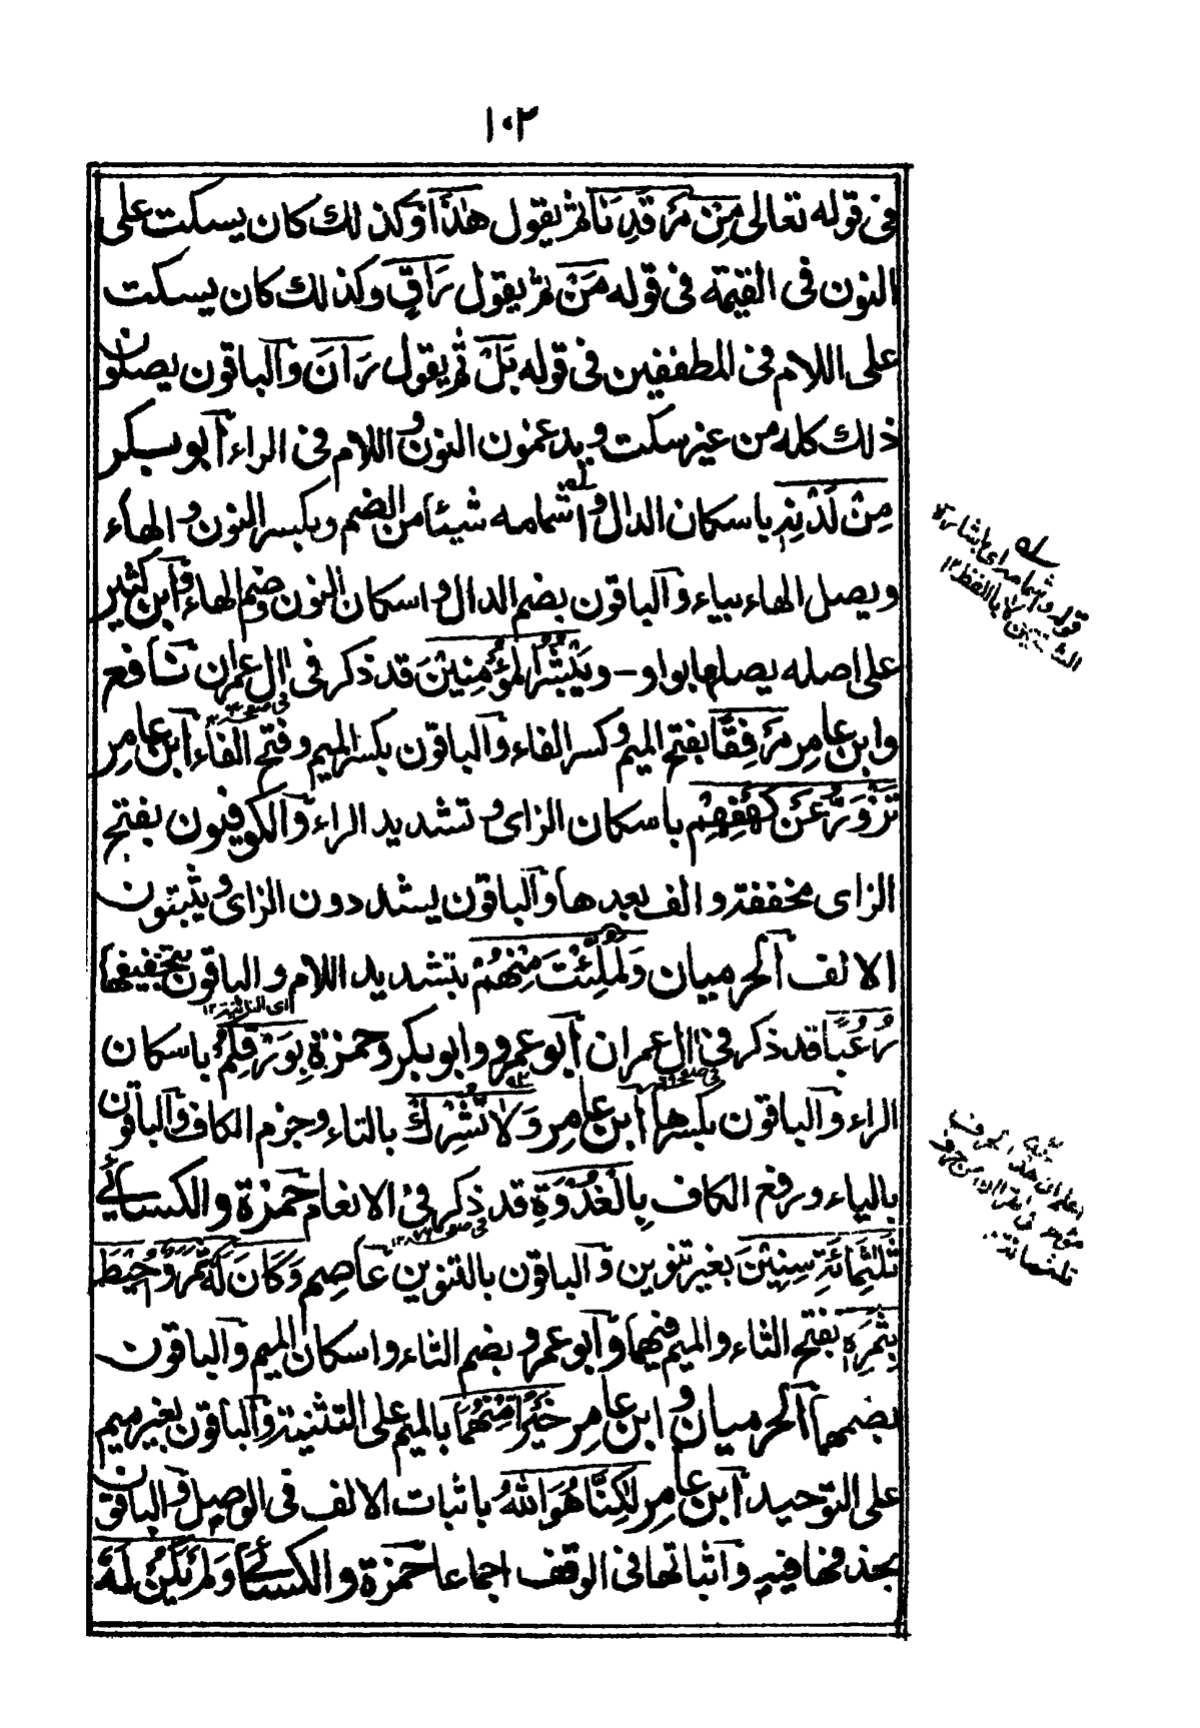 ١٠٢
فى قوله تعالى مِنْ مَرْقَدِنَا ثم يقول هٰذَا وكذلك كان يسكت على
النون فى القيٰمة فى قوله مَنْ ثم يقول رَاقٍ وكذلك كان يسكت
على اللام فى المطففين فى قوله بَلْ ثم يقول رَانَ والباقون يصلون
ذلك كله من غير سكت ويدغمون النون واللام فى الراء ابو بكر
مِنْ لَدْنِهِ باسكان الدال واشمامه شيئا من الضم وبكسر النون والهاء
ويصل الهاء بياء والباقون بضم الدال واسكان النون وضم الهاء وابن كثير
على اصله يصلها بواو – ويَبْشُرُ الْمُؤْمِنِيْنَ قد ذكر فى اٰل عمران نافع
وابن عامر مَرْفِقًا بفتح الميم وكسر الفاء والباقون بكسر الميم وفتح الفاء ابن عامر
تَزْوَرُّ عَنْ كَهْفِهِمْ باسكان الزاى وتشديد الراء والكوفيون بفتح
الزاى مخففة والف بعدها والباقون يشددون الزاى ويثبتون
الالف الحرميان وَلَمُلِّئْتَ مِنْهُمْ بتشديد اللام والباقون بتخفيفها
رُعْبًا قد ذكر فى اٰل عمران ابو عمرو وابو بكر وحمزة بِوَرْقِكُمْ باسكان
الراء والباقون بكسرها ابن عامر وَلَا تُشْرِكْ بالتاء وجزم الكاف والباقون
بالياء ورفع الكاف بِالْغُدْوَةِ قد ذكر فى الانعام حمزة والكسائى
ثَلٰثَمِائَةِ سِنِيْنَ بغير تنوين والباقون بالتنوين عاصم وَكَانَ لَهٗ ثَمَرٌ وَاُحِيْطَ
بِثَمَرِهٖ بفتح الثاء والميم فيهما وابو عمرو بضم الثاء واسكان الميم والباقون
بضمهما الحرميان وابن عامر خَيْرًا مِّنْهُمَا بالميم على التثنية والباقون بغير ميم
على التوحيد ابن عامر لٰكِنَّا هُوَ اللّٰهُ باثبات الالف فى الوصل والباقون
بحذفها فيه واثباتها فى الوقف اجماعا حمزة والكسائى وَلَمْ يَكُنْ لَهٗ